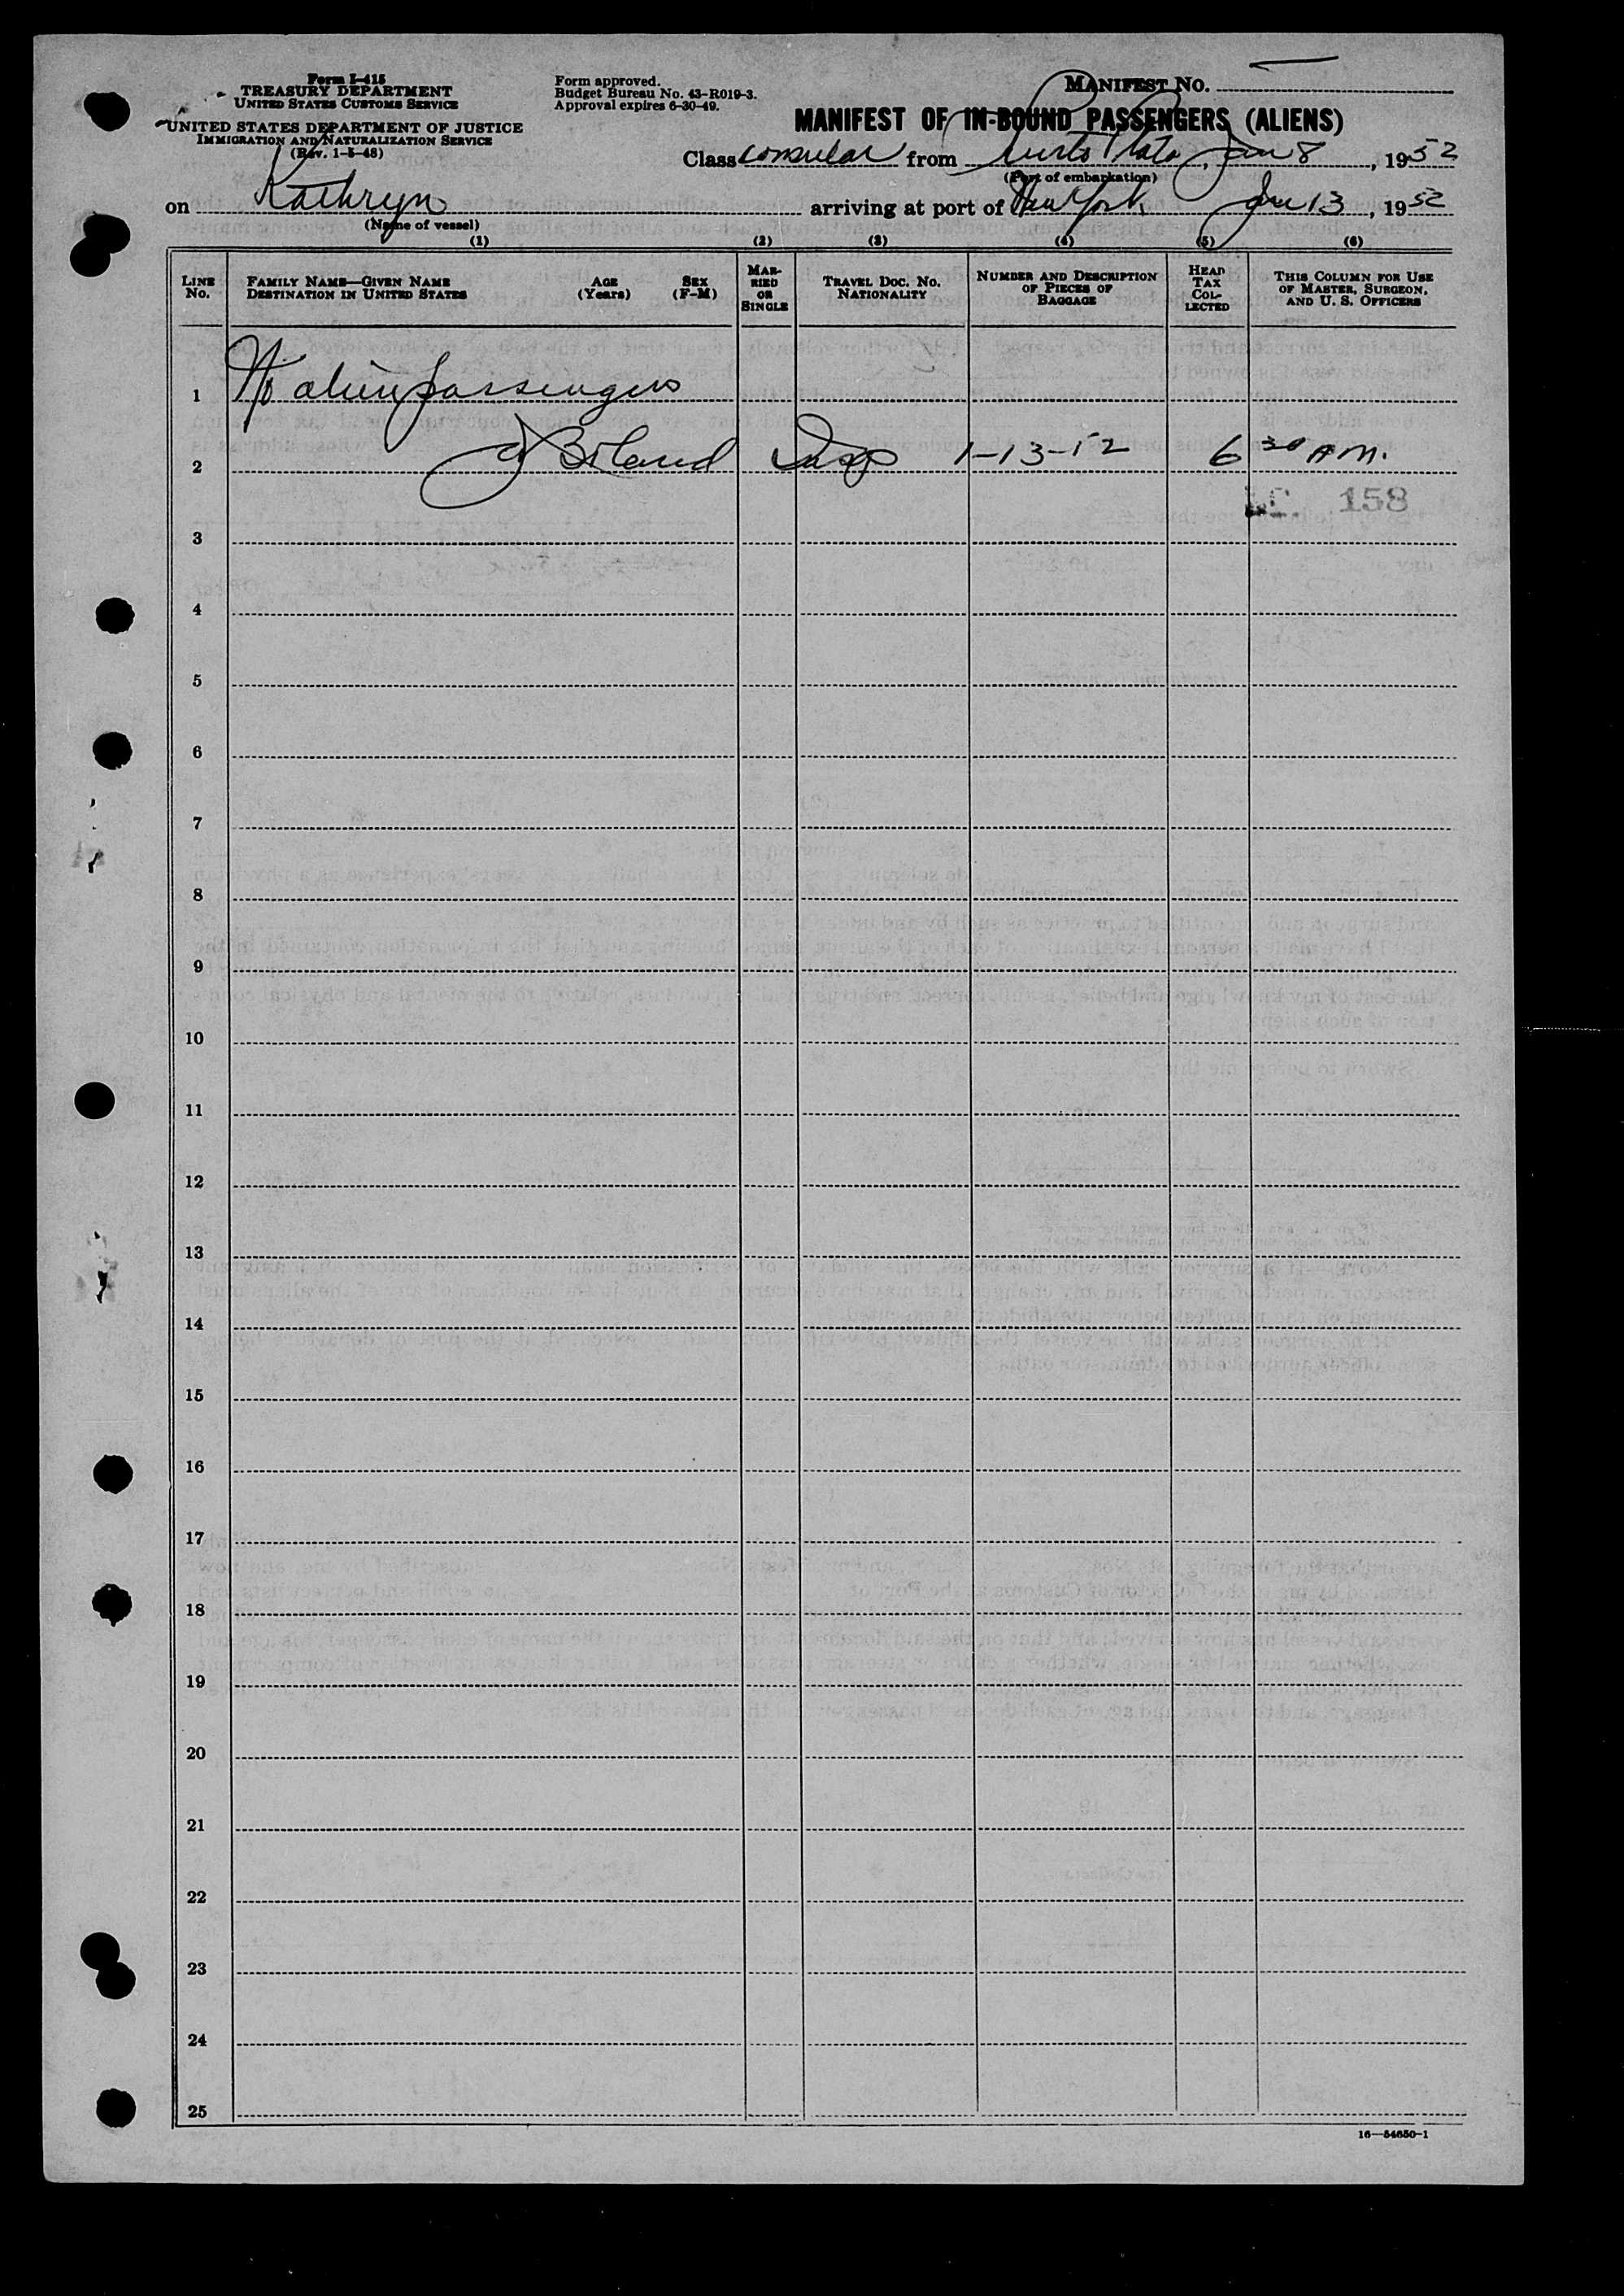 Form I-415
TREASURY DEPARTMENT
UNITED STATES CUSTOMS SERVICE
UNITED STATES DEPARTMENT OF JUSTICE
IMMIGRATION AND NATURALIZATION SERVICE
(Rev. 1-5-48)
Form approved.
Budget Bureau No. 43-R019-3.
Approval expires 6-30-49.
MANIFEST NO.
MANIFEST OF IN-BOUND PASSENGERS (ALIENS)
Class consular from Puerto Plata, Jan 8, 1952
(Port of embarkation)
on Kathryn arriving at port of New York Jan 13, 1952
(Name of vessel)
(1) (2) (3) (4) (5) (6)
LINE No.
FAMILY NAME—GIVEN NAME
DESTINATION IN UNITED STATES
AGE (Years)
SEX (F-M)
MARRIED OR SINGLE
TRAVEL DOC. NO. NATIONALITY
NUMBER AND DESCRIPTION OF PIECES OF BAGGAGE
HEAD TAX COLLECTED
THIS COLUMN FOR USE OF MASTER, SURGEON, AND U. S. OFFICERS
1 No alien passengers
2 Boland Insp 1-13-52 6 30 AM.
158
3
4
5
6
7
8
9
10
11
12
13
14
15
16
17
18
19
20
21
22
23
24
25
16—54650-1